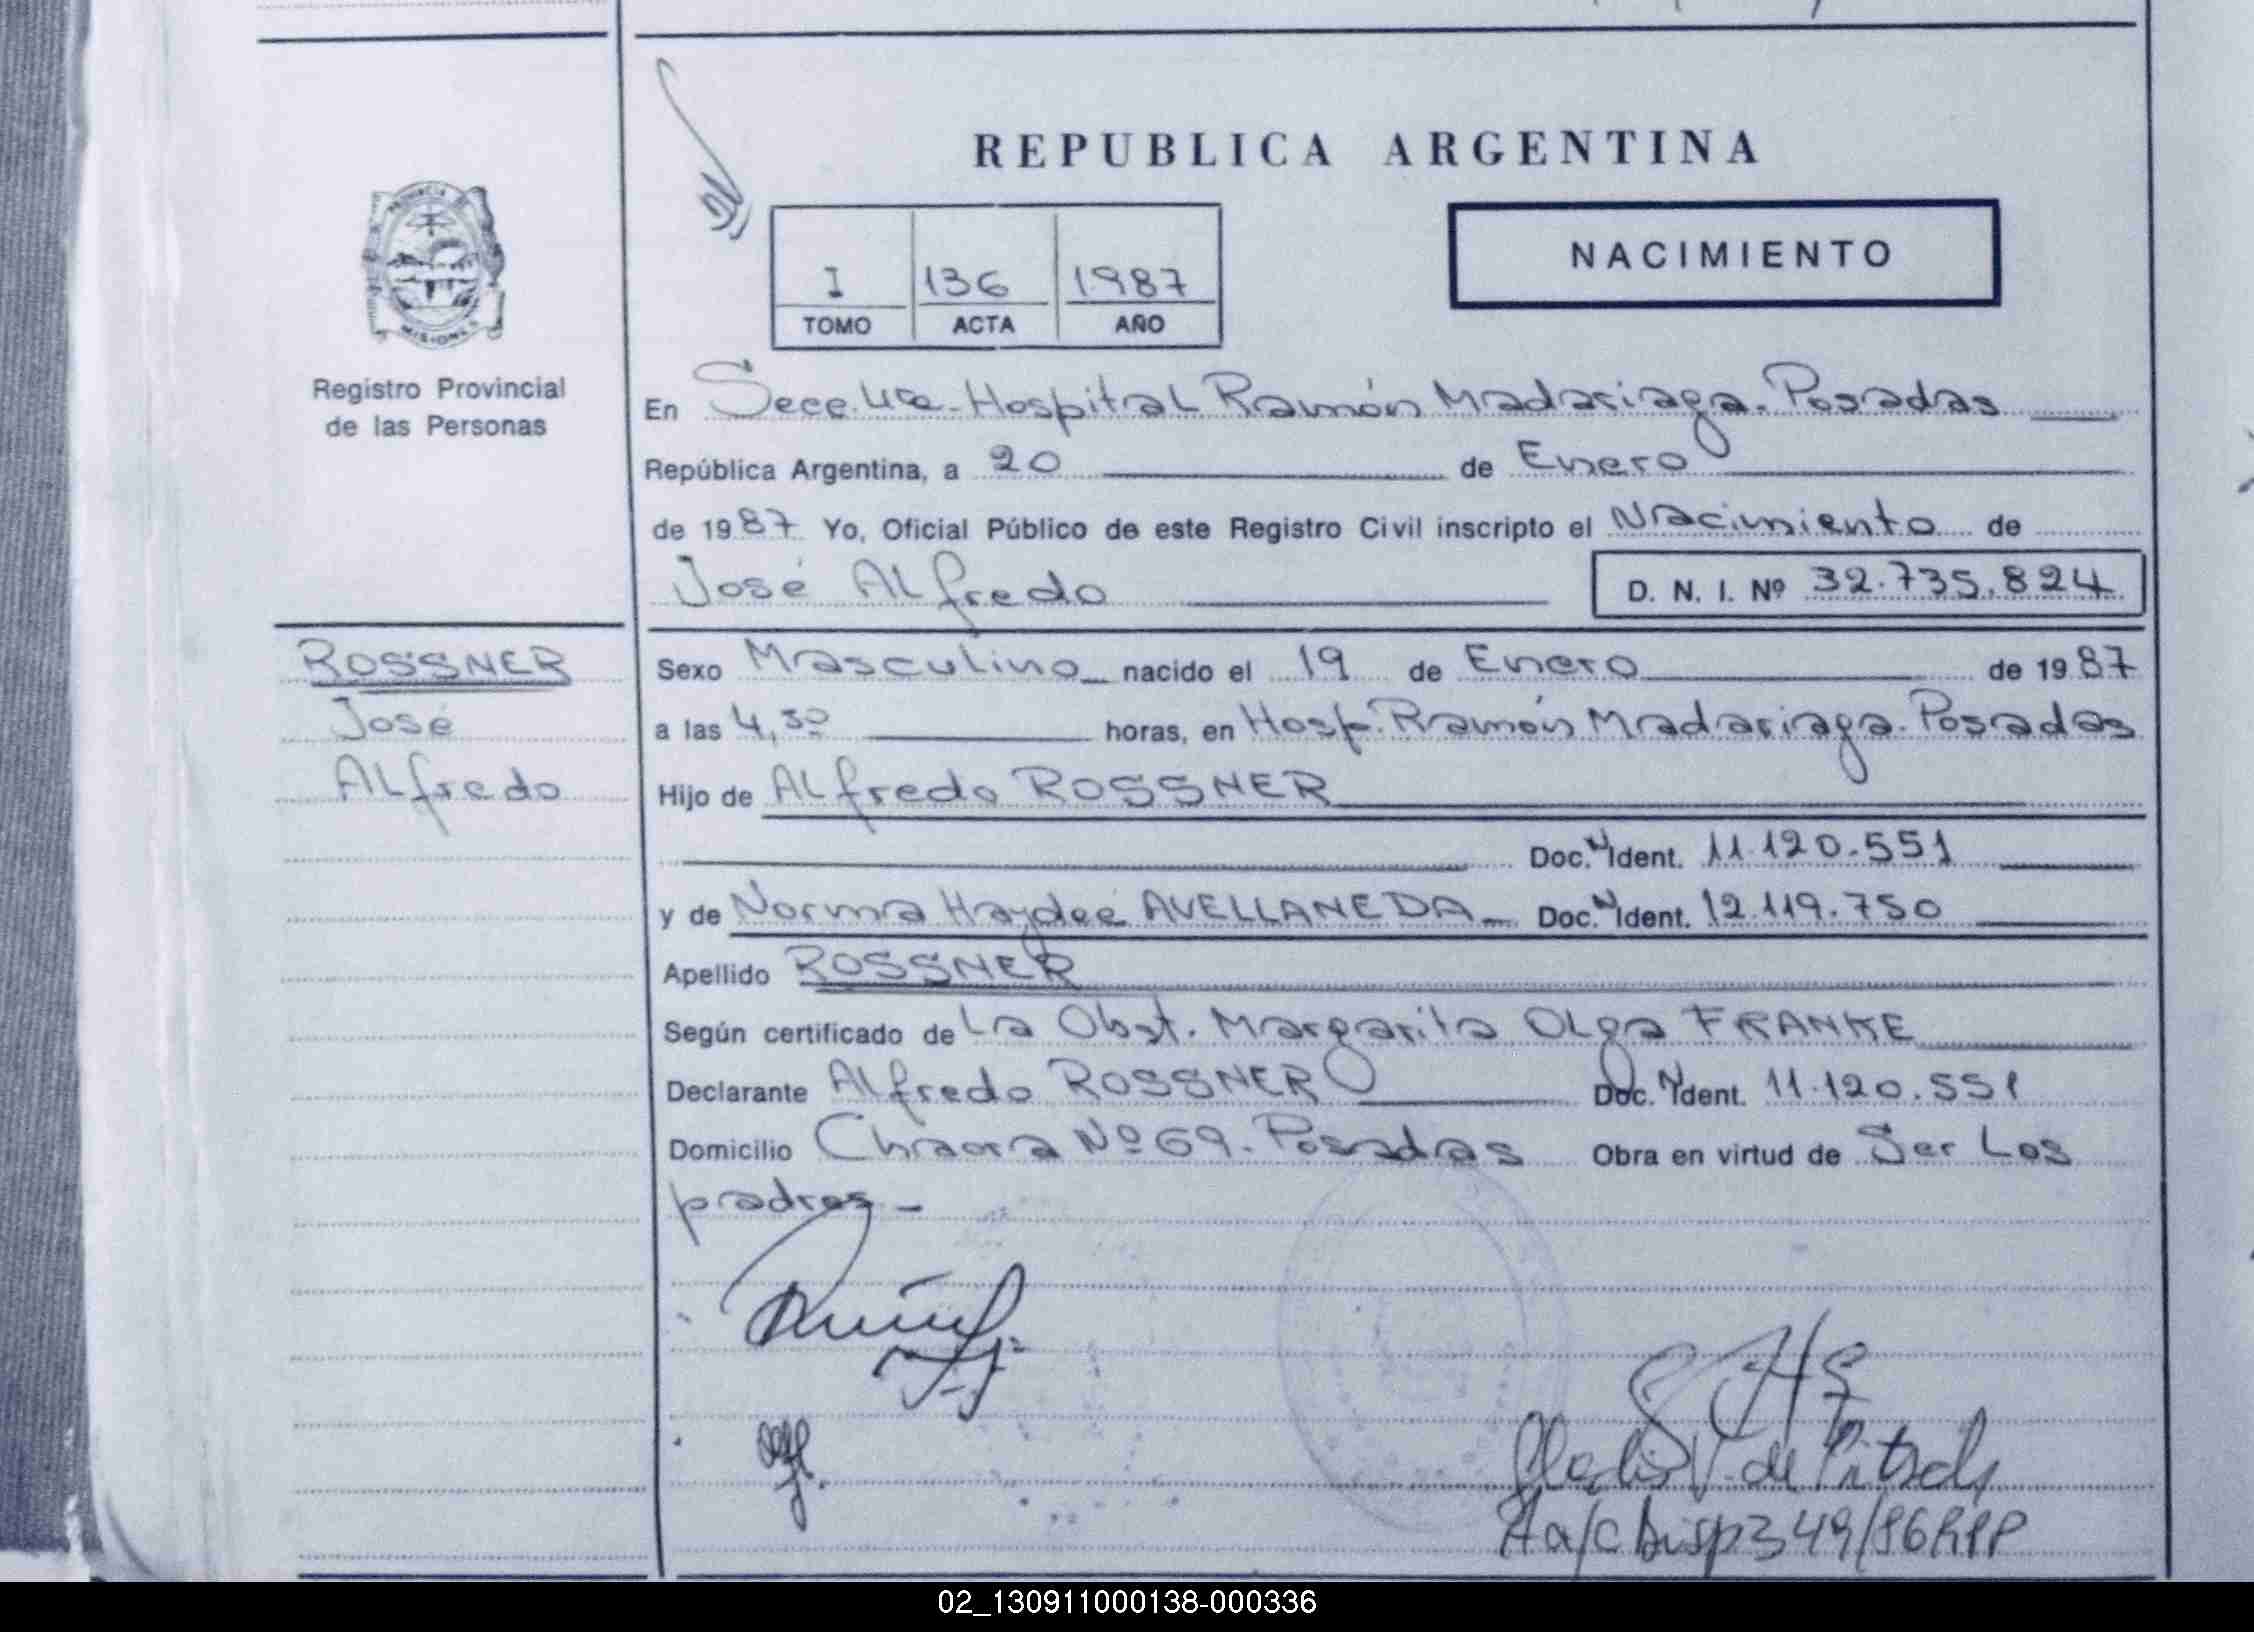 REPUBLICA ARGENTINA
PROVINCIA
MISIONES
Registro Provincial
de las Personas
I 136 1987
TOMO ACTA AÑO
NACIMIENTO
En Secc. 4ta - Hospital Ramón Madariaga. Posadas
República Argentina, a 20 de Enero
de 1987 Yo, Oficial Público de este Registro Civil inscripto el Nacimiento de
José Alfredo D. N. I. Nº 32.735.824
ROSSNER
José
Alfredo
Sexo Masculino nacido el 19 de Enero de 1987
a las 4,30 horas, en Hosp. Ramón Madariaga. Posadas
Hijo de Alfredo ROSSNER
Doc. N Ident. 11.120.551
y de Norma Haydee AVELLANEDA Doc. N Ident. 12.119.750
Apellido ROSSNER
Según certificado de La Obst. Margarita Olga FRANKE
Declarante Alfredo ROSSNER Doc. N Ident. 11.120.551
Domicilio Chacra Nº 69. Posadas Obra en virtud de Ser Los
padres -
V. de
a/c Disp 349/86 RPP
02_130911000138-000336